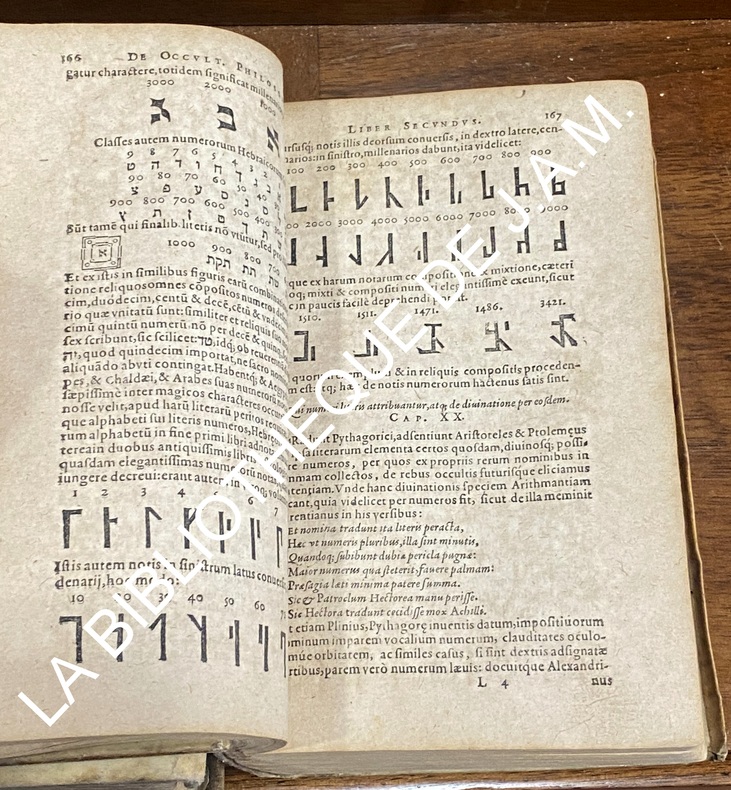 166 DE OCCVLT. PHILOS
gatur charactere, totidem significat millenari
3000 2000 1000
ג ב א
Classes autem numerorum Hebraicorum
9 8 7 6 5 4 3 2
ט ח ז ו ה ד ג ב
90 80 70 60 50 40 30
צ פ ע ס נ מ
900 800 700 600 500 400 300
ץ ף ן ם ך ת
Sūt tamē qui finalib. literis nō vtūtur, sed
1000 900 800 700
א תתק תת תש
Et ex istis in similibus figuris earū
tione reliquos omnes cōpositos numeros
cim, duodecim, centū & decē, cētū & vnde
rio quæ vnitatū sunt: similiter et reliquis
cimū quintū numerū. nō per decē & quinq
sex scribunt, sic scilicet: טו, idq; ob reuerentiā
יה, quod quindecim importat, ne sacro
aliquādo abvti contingat. Habentq; & Aegy
pes, & Chaldæi, & Arabes suas numerorū
sæpissime inter magicos characteres
nosse velit, apud harū literarū peritos
que alphabeti sui literis numeros, Hebræ
rum alphabetū in fine primi libri
terea in duobus antiquissimis libris
quasdam elegantissimas
iungere decreui: erant autem
1 2 3 4 6 7
Istis autem notis in sinistrum latus
denarij, hoc modo:
10 20 30 40 50 60
LIBER SECVNDVS. 167
ursusq; notis illis deorsum conuersis, in dextro latere, cen-
narios: in sinistro, millenarios dabunt, ita videlicet:
100 200 300 400 500 600 700 800 900
2000 3000 4000 5000 6000 7000 8000 9000
que ex harum notarum compositione & mixtione, cæteri
oq; mixti & compositi numeri elegantissimè exeunt, sicut
in paucis facilè deprehendi potest.
1510. 1511. 1471. 1486. 3421.
& in reliquis compositis proceden-
m est: atq; hæc de notis numerorum hactenus satis sint.
Qui numeri literis attribuantur, atq; de diuinatione per eosdem.
CAP. XX.
Pythagorici, adsentiunt Aristoteles & Ptolemæus
literarum elementa certos quosdam, diuinosq; possi-
e numeros, per quos ex propriis rerum nominibus in
collectos, de rebus occultis futurisque eliciamus
tentiam. Vnde hanc diuinationis speciem Arithmantiam
cant, quia videlicet per numeros fit, sicut de illa meminit
rentianus in his versibus:
Et nomina tradunt ita literis peracta,
Hæc vt numeris pluribus, illa sint minutis,
Quandoq; subibunt dubiæ pericla pugnæ:
Maior numerus qua steterit, fauere palmam:
Præsagia læti minima patere summa.
Sic & Patroclum Hectorea manu perisse.
Sic Hectora tradunt cecidisse mox Achilli.
t etiam Plinius, Pythagoræ inuentis datum, impositiuorum
ominum imparem vocalium numerum, clauditates oculo-
múe orbitatem, ac similes casus, si sint dextris adsignatæ
rtibus, parem verò numerum læuis: docuitque Alexandri-
L 4 nus
LA BIBLIOTHEQUE DE J.A.M.